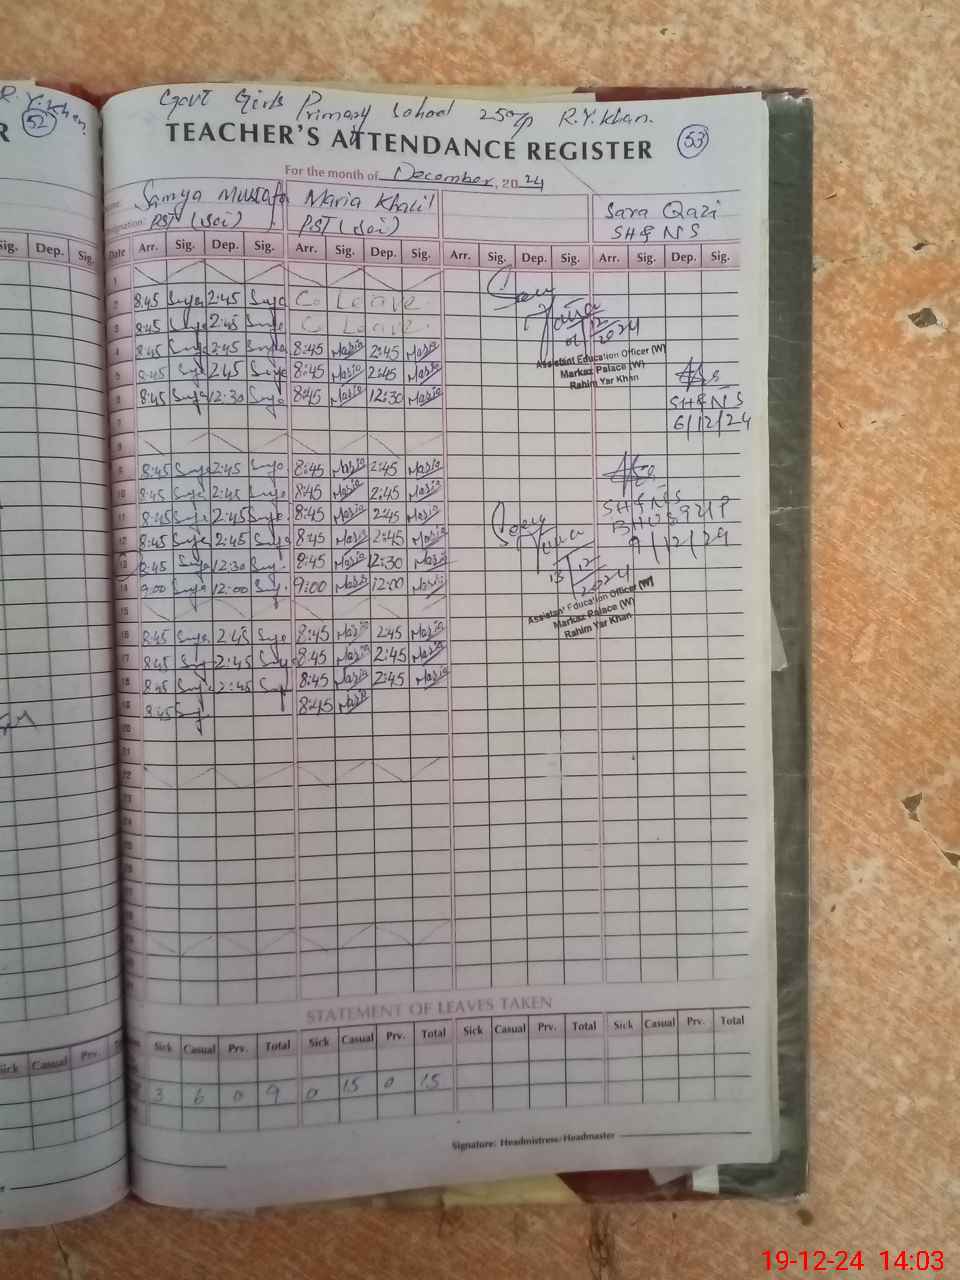 R.Y.Khan
52
R
Govt Girls Primary School 250/p R.Y.Khan.
TEACHER'S ATTENDANCE REGISTER
53
For the month of December, 2024
Samya Mustafa Maria Khalil Sara Qazi
Designation: PST (Sci) PST (Sci) SH&NS
Sig. Dep. Sig.
Date Arr. Sig. Dep. Sig. Arr. Sig. Dep. Sig. Arr. Sig. Dep. Sig. Arr. Sig. Dep. Sig.
1
2 8:45 2:45 C. Leave.
3 8:45 2:45 C. Leave.
4 8:45 2:45 8:45 Maria 2:45 Maria
5 8:45 2:45 8:45 Maria 2:45 Maria
6 8:45 12:30 8:45 Maria 12:30 Maria
7
8
9 8:45 2:45 8:45 Maria 2:45 Maria
10 8:45 2:45 8:45 Maria 2:45 Maria
11 8:45 2:45 8:45 Maria 2:45 Maria
12 8:45 2:45 8:45 Maria 2:45 Maria
13 8:45 12:30 8:45 Maria 12:30 Maria
14 9:00 12:00 9:00 Maria 12:00 Maria
15
16 8:45 2:45 8:45 Maria 2:45 Maria
17 8:45 2:45 8:45 Maria 2:45 Maria
18 8:45 2:45 8:45 Maria 2:45 Maria
19 8:45 8:45 Maria
20
21
22
23
24
25
26
12
2024
Assistant Education Officer (W)
Markaz Palace (W)
Rahim Yar Khan
SH&NS
6/12/24
SH&NS
9/12/24
13/12/2024
Assistant Education Officer (W)
Markaz Palace (W)
Rahim Yar Khan
STATEMENT OF LEAVES TAKEN
Sick Casual Prv.
Sick Casual Prv. Total Sick Casual Prv. Total Sick Casual Prv. Total Sick Casual Prv. Total
3 6 0 9 0 15 0 15
Signature: Headmistress/Headmaster
19-12-24 14:03